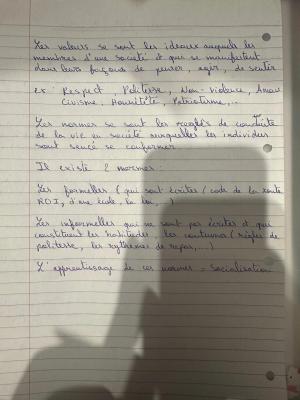 Les valeurs se sont les ideaux auxquels les
membres d'une société et que se manifestent
dans leurs façons de penser, agir, de sentir
ex Respect, Politesse, Non-Violence, Amour
Civisme, Honnêteté, Patriotisme,...
Les normes se sont les regles de conduite
de la vie en société auxquelles les individus
sont sencé se conformer
Il existe 2 normes:
Les formelles (qui sont écrites / code de la route
ROI, d'une école, la loi, ...)
Les informelles qui ne sont pas écrites et qui
constituent les habitudes les coutumes (règles de
politesse, les rythmes de repas,...)
L'apprentissage de ces normes = Socialisation